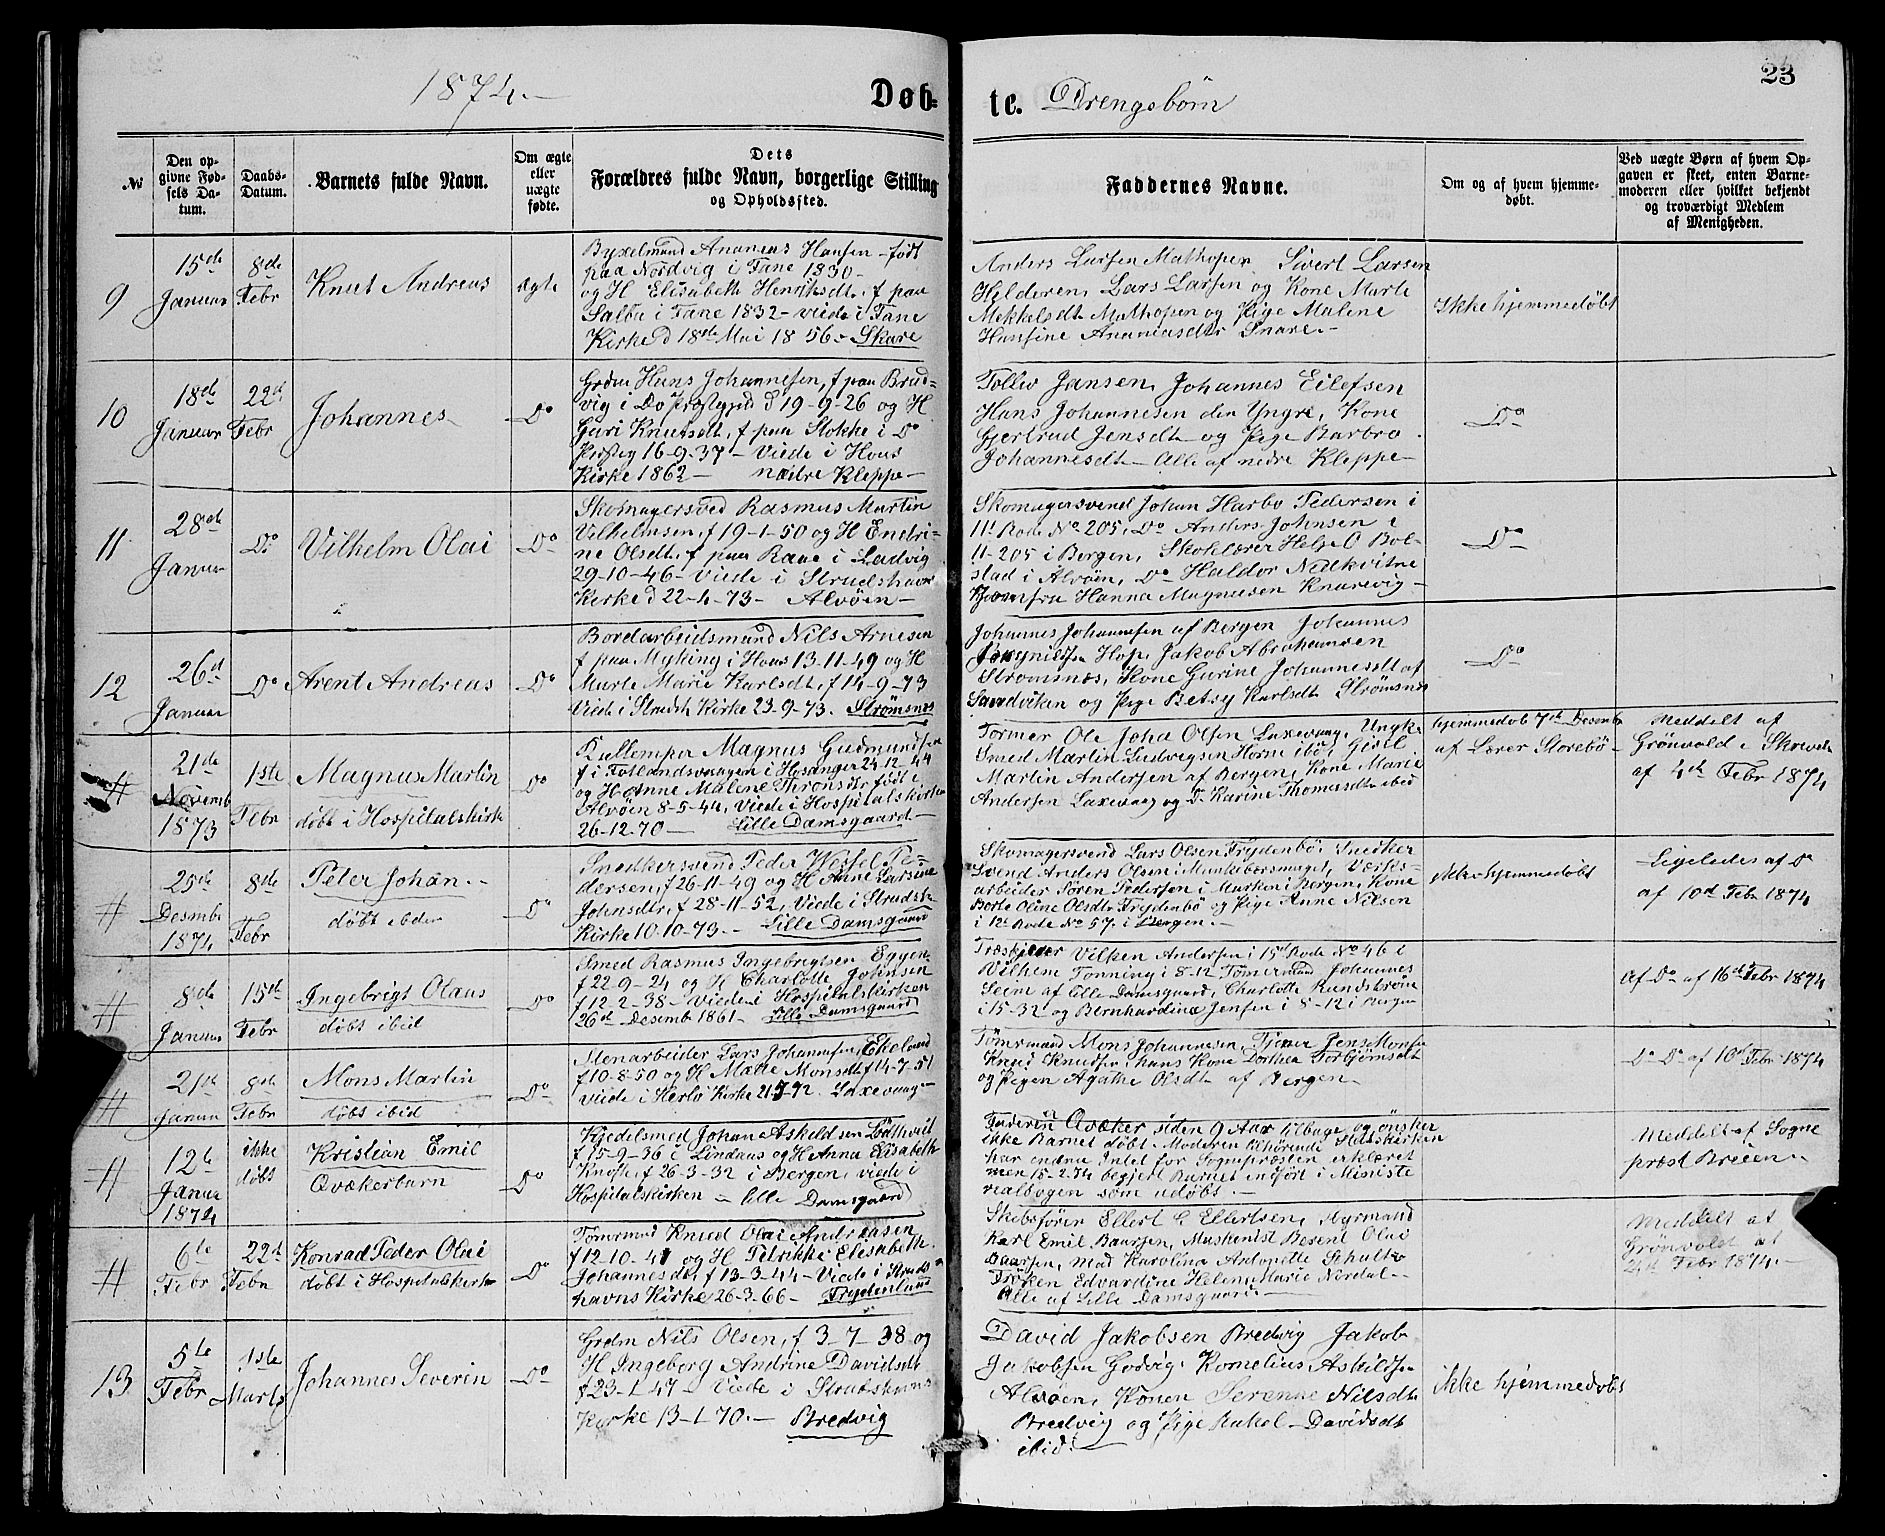 1874.-
Døb-
te. Drengsbørn
23
№
Den op-
givne Fød-
sels Da-
tum.
Daabs-
Datum.
Barnets fulde Navn.
Om ægte
eller
uægte
fødte.
Dets
Forældres fulde Navn, borgerlige Stilling
og Opholdssted.
Faddernes Navne.
Om og af hvem hjemme-
døbt.
Ved uægte Børn af hvem Op-
gaven er skeet, enten Barne-
moderen eller hvilket bekjendt
og troværdigt Medlem
af Menigheden.
9
15de
Januar
8de
Febr
Knut Andreas
ægte
Byxelmand Ananias Hansen - født
paa Nordvig i Fane 1830-
og H Elisabeth Henriksdt. f paa
Salbu i Fane 1832 - viede i Fane
Kirke d 18de Mai 1856. Skare
Anders Larsen Mathopen Sivert Larsen
Helderen, Lars Larsen og Kone Marte
Mekkelsdt Mathopen og Pige Malene
Hansine Ananiasdtr Snare.-
Ikke hjemmedøbt
10
18de
Januar
22de
Febr
Johannes
Do
Grdm Hans Johannesen, f paa Brud-
vig i Do Præstgjed d 19-9-26 og H
Guri Knutsdt, f paa Stokke i Do
Præstg 16-9-37 - Viede i Hous
Kirke 1862 - nædre Kleppe-
Tollev Jansen, Johannes Eilefsen
Hans Johannesen den Yngre, Kone
Gjertrud Jensdt - og Pige Barbro
Johannesdt - Alle af nedre Kleppe-
Do
11
28de
Januar
Do
Vilhelm Olai
Do
Skomagersved Rasmus Martin
Vilhelmsen, f 19-1-50 og H Endri-
ne Olsdt, f paa Raae i Ladvig
29-10-46- Viede i Strudshavn
Kirke d 22-4-73- Alvøen-
Skomagersvend Johan Harbo Pedersen i
11t Rode No 205, Do Anders Johnsen i
11-205 i Bergen, Skolelærer Helje O Bol-
stad i Alvøen, Do Haldor Nedkvitne
Jomfru Hanna Magnusen Knarevig-
Do
12
26d
Januar
Do
Arent Andreas
Do
Bordarbeidsmand Nils Arnesen
f paa Myking i Hous 13-11-49 og H
Marte Marie Karlsdt, f 14-9-73
Viede i Strudsh Kirke 23-9-73. Strømsnes
Johannes Johannesen af Bergen Johannes
Hop, Jakob Abrahamsen
Strømsnes, Kone Gurine Johannesdt af
Sandviken og Pige Betsy Karlsdt Strømsnes
Do
#
21de
Novemb
1873
1ste
Febr
Magnus Martin
døbt i Hospitalskirk
Do
Magnus Gudmundsen
f i Fotlandsvaagen i Hosanger 24-12-44
og H Anne Malene Thronsdr født i
Alvøen 8-5-44, Viede i Hospitalskirken
26-12-70 - Lille Damsgaard-
Former Ole Joha Olsen Laxevaag, Ungk.
Smed Martin Ludvigsen Horne ibd,
Martin Andersen af Bergen, Kone Marie
Andersen Laxevaag og D. Karine Thomasdt ibid
hjemmedøb 7de Desemb
af Lærer Storebø-
Meddelt af
Grönvold i Skrivels
af 4de Febr 1874
#
25de
Desemb
1874
8de
Febr
Peter Johan.-
døbt ibder
Do
Snedkersvend Peder Wessel Pe-
dersen, f 26-11-49 og H Anne Larsine
Johnsdtr, f 28-11-52, Viede i Strudsh
Kirke 10-10-73.- Lille Damsgaard
Skomagersvend Lars Olsen Frydenbø, Snedker
Svend Anders Olsen i Munkebotsmuget, Værks-
arbeider Søren Pedersen i Marken i Bergen, Kone
Berte Oline Olsdt Frydenbø og Pige Anne Nilsen
i 12t Rode No 57. i Bergen.-
Ikke hjemmedøbt
Ligeledes af Do
af 10de Febr 1874
#
8de
Januar
15de
Febr
Ingebrigt Olaus
døbt ibid
Do
Smed Rasmus Ingebrigtsen Eggen,
f 22-9-24 og H Charlotte Johnsen
f 12-2-38- Viede i Hospitalskirken
26de Desemb 1861 - Lille Damsgaard
Vilken Andersen i 15de Rode No 46 i
Vilhem Tonning i 8-12 Tømermand Johannes
Seim af Lille Damsgaard, Charlotte Rundstrøm
i 15-32 og Bernhardine Jensen i 8-12 i Bergen
Af Do af 16de Febr 1874
#
21de
Januar
8de
Febr
Mons Martin
døbt ibid
Do
Stenarbeider Lars Johannesen, Ekeland
f 10-8-50 og H Marie Monsdt f 14-7-51
viede i Herlø Kirke 72. Laxevaag-
Tømrmand Mons Johannesen, Tjener Jens Monsen
Knud Knudsen, hans Kone Dorthea Torbjørnsdt
og Pigen Agathe Olsdt af Bergen-
Do Do af 10de Febr 1874
#
12te
Janua
1874
ikke
døbt
Kristian Emil
Qvækerbarn
Do
Kjedelsmed Johan Askeldsen Lødthveit
f 15-9-36 i Lindaas og H Anna Elisabeth
Knoff, f 26-3-32 i Bergen, viede i
Hospitalskirken - Lille Damsgaard
Faderen Qvæker siden 9 Aar tilbage og ønsker
ikke Barnet døbt. Moderen tilhørende Statskirken
har endnu Intet for Sognepræsten erklæret
men 15-2-74 begjert Barnet indført i Ministe
rialbogen som udøbt.-
Meddelt af Sogne
prest Breien.-
#
6te
Febr
22de
Febr
Konrad Peder Olai
døbt i Hospitalskirke
Do
Tømrmand Knud Olai Andreasen
f 12-10-41 og H Petrikke Elisabeth
Johannesdt, f 13-3-44- Viede i Struds
havns Kirke 26-3-66- Frydenlund
Skibsfører Ellert E Ellertsen, Styrmand
Karl Emil Baarsen, Maskenist Besent Olai
Baarsen, Mad Karolina Antonette Schultz
Frøken Edvardine Helene Marie Nordal.-
Alle af Lille Damsgaard.-
Meddelt af
Grönvold af
24de Febr 1874.-
13
5te
Febr
1ste
Marts
Johannes Severin
Do
Grdm Nils Olsen, f 3-7-38 og
H Ingeborg Andrine Davidsdt
f 23-1-47 - Viede i Strudshavns
Kirke 13-1-70.- Bredvig
David Jakobsen Bredvig Jakob
Jakobsen Godvig, Kornelius Askildsen
Alvøen, Konen Serenne Nilsdt
Bredvig og Pige Rakel Davidsdt
ibid.
ikke hjemmedøbt